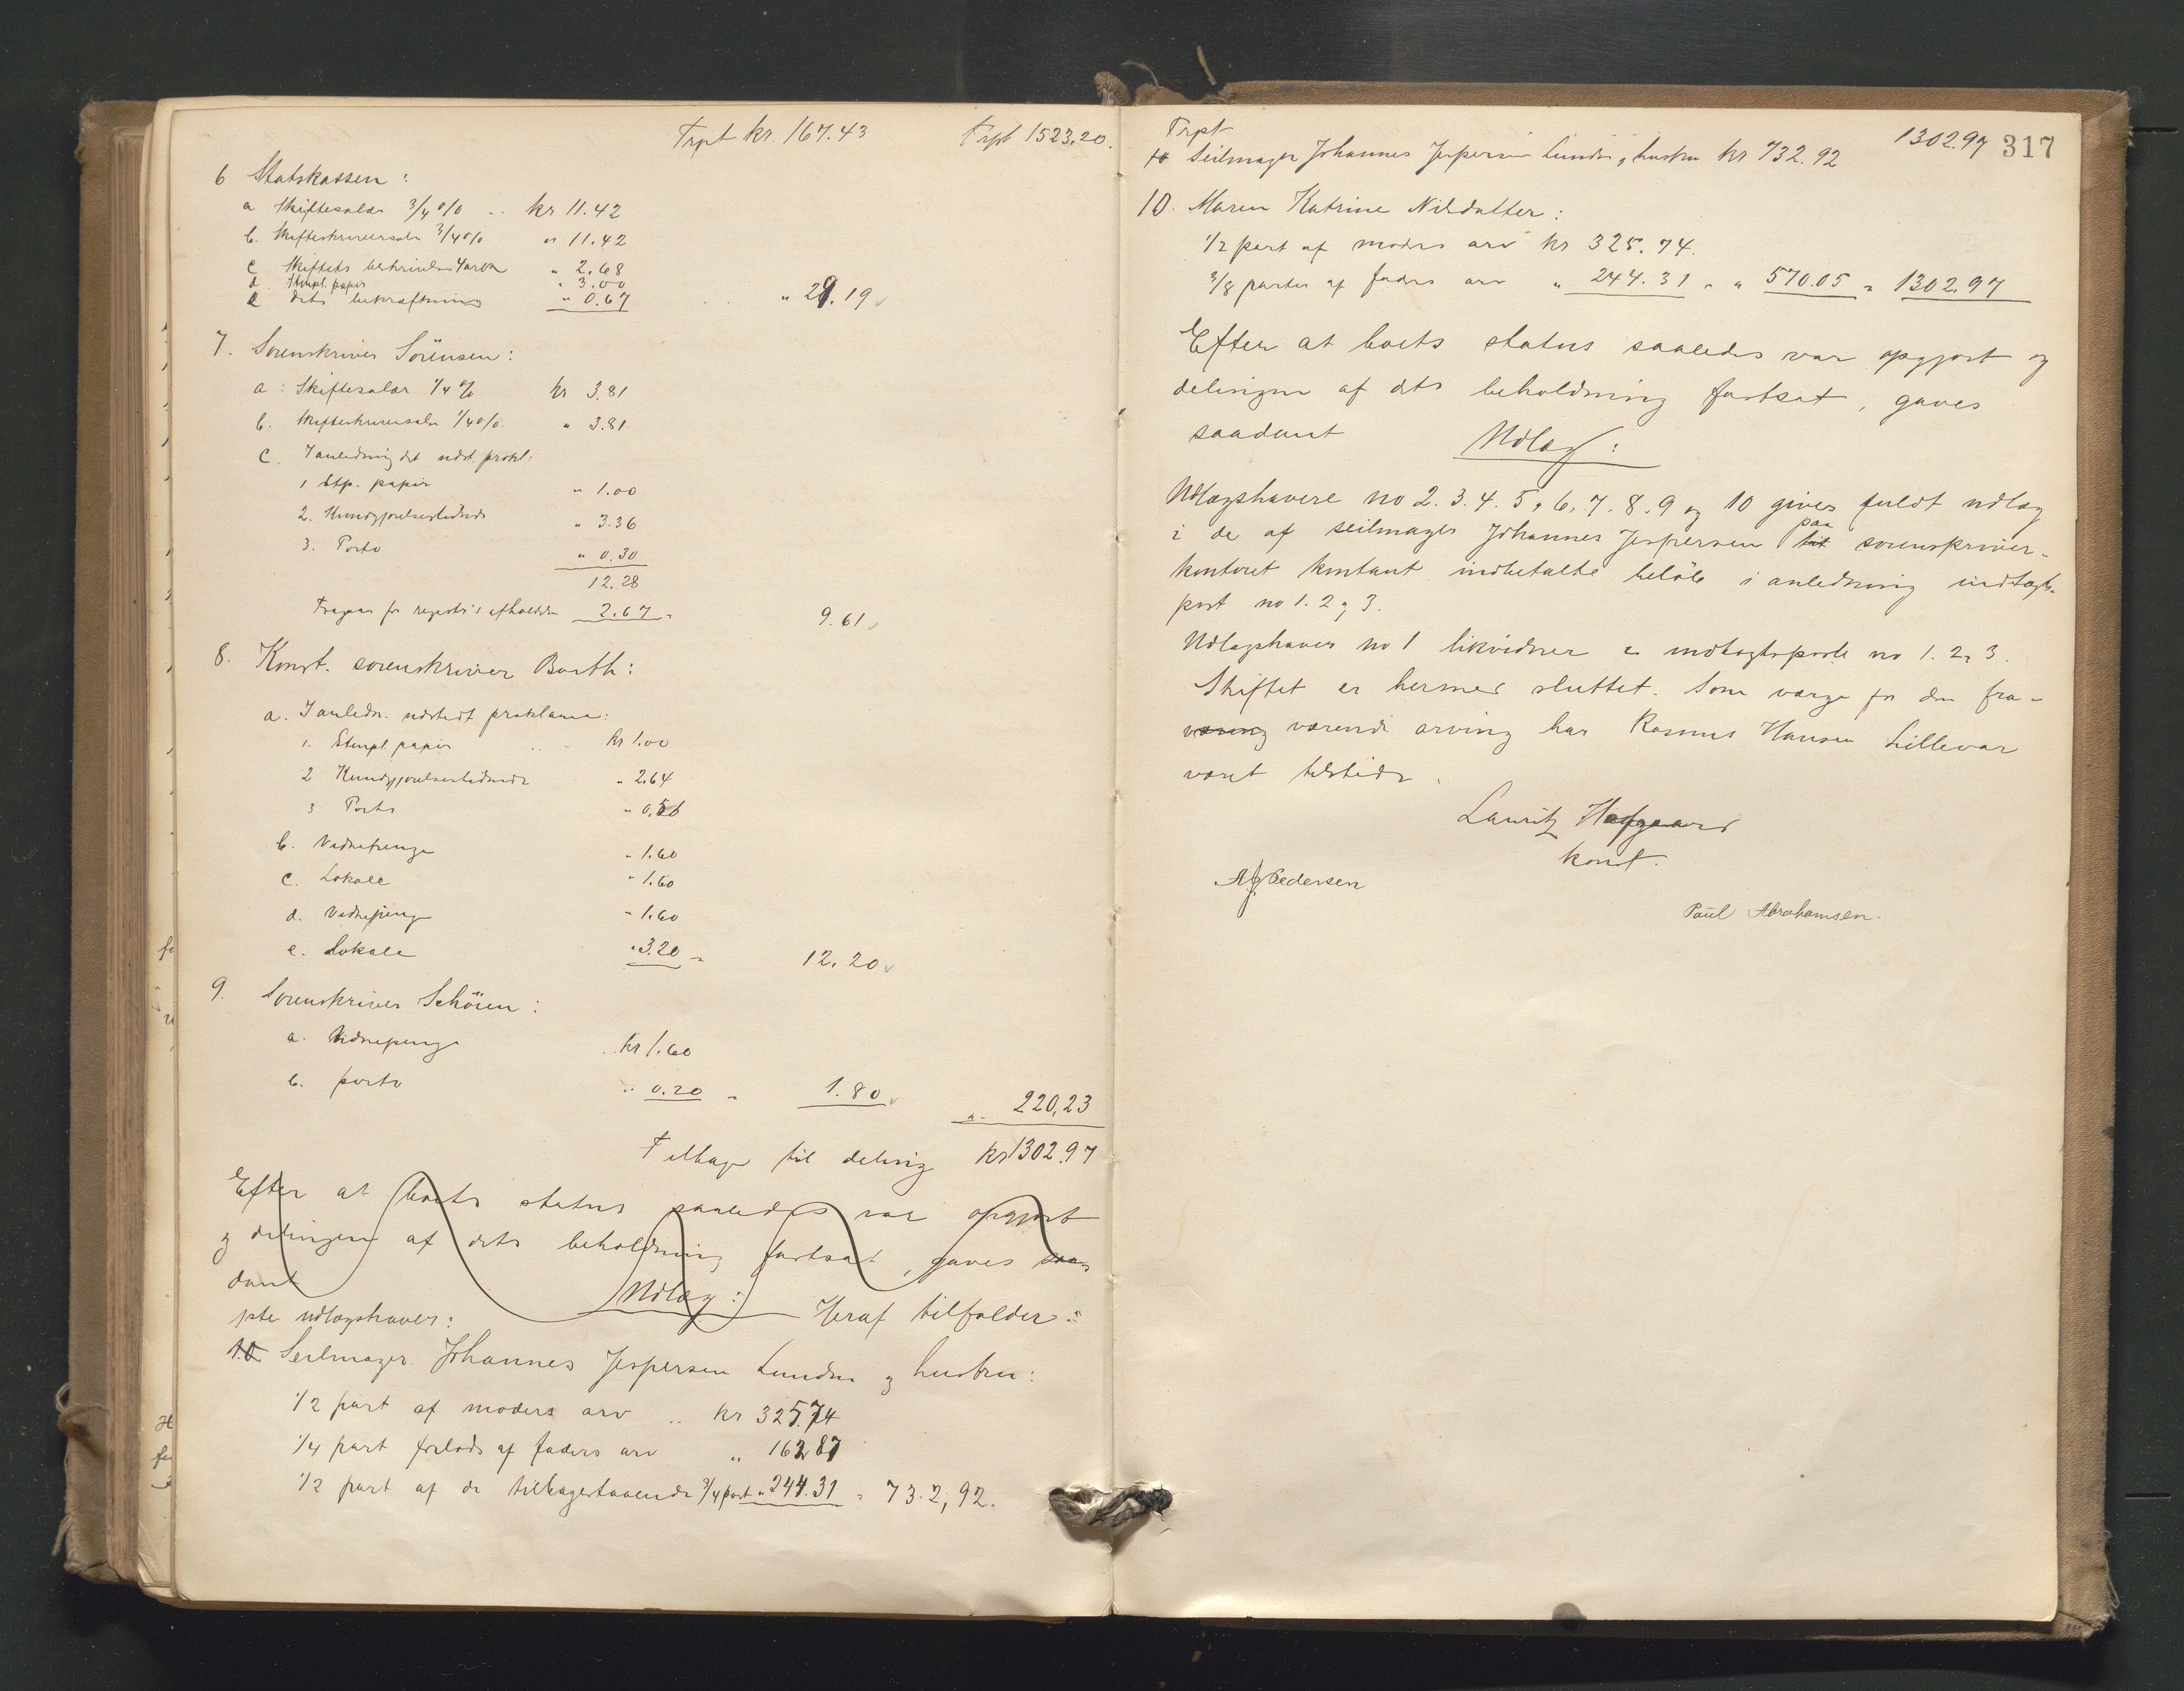 Trpt kr. 167.43 Trpt 1523.20.
6 Statskassen:
a Skiftesalær 3/4 % .. kr 11.42
b. Skifteskriversalær 3/4 % " 11.42
c Skiftets beskrivelse 4 ark " 2.68
d. Stempl. papir " 3.00
e dets bekræftning " 0.67 . . " 29.19
7. Sorenskriver Sörensen:
a: Skiftesalær 1/4 % kr 3.81
b. Skifteskriversalær 1/4 % " 3.81
c. I anledning det udst. prokl:
1 Stp. papir " 1.00
2. Kundgjørelsestidende " 3.36
3. Porto " 0.30
12.28
Fragaar for registr's afholdelse 2.67 = 9.61
8. Konst. sorenskriver Barth:
a. I anledn. udstedt proklama:
1. Stempl. papir .. kr 1.00
2 Kundgjørelsestidende " 2.64
3 Porto " 0.56
b. Vidnepenge " 1.60
c. Lokale " 1.60
d. Vidnepenge " 1.60
e. Lokale " 3.20 = 12.20
9. Sorenskriver Schöien:
a. Vidnepenge kr 1.60
b. porto " 0.20 = 1.80 " 220,23
Tilbage til deling kr 1302.97
Efter at boets status saaledes var opgjort
og delingen af dets beholdning fastsat, gaves saa-
dant Udlæg: Heraf tilfalder:
jste udlægshaver:
10 Seilmager Johannes Jespersen Lunden og hustru:
1/2 part af moders arv .. kr 325.74
1/4 part forlods af faders arv " 162.87
1/2 part af de tilbagestaaende 3/4 part " 244.31 = 732,92.
Trpt 1302.97 317
10 Seilmager Johannes Jespersen Lunden og hustru kr 732.92
10. Maren Katrine Nilsdatter:
1/2 part af moders arv kr 325.74.
3/8 parter af faders arv " 244.31 = " 570.05 = 1302.97
Efter at boets status saaledes var opgjort og
delingen af dets beholdning fastsat, gaves
saadant Udlæg:
Udlægshavere no 2. 3. 4. 5, 6. 7. 8. 9 og 10 gives fuldt udlæg
i de af seilmager Johannes Jespersen til paa sorenskriver-
kontoret kontant indbetalte beløb i anledning indtægts-
post no 1. 2 og 3.
Udlægshaver no 1 likviderer i indtægtsposte no 1. 2 og 3.
Skiftet er hermed sluttet. Som værge for den fra-
væring værende arving har Rasmus Hansen Lillevar
været tilstede.
Lauritz Hafgaard
konst.
Pedersen
Paul Abrahamsen.